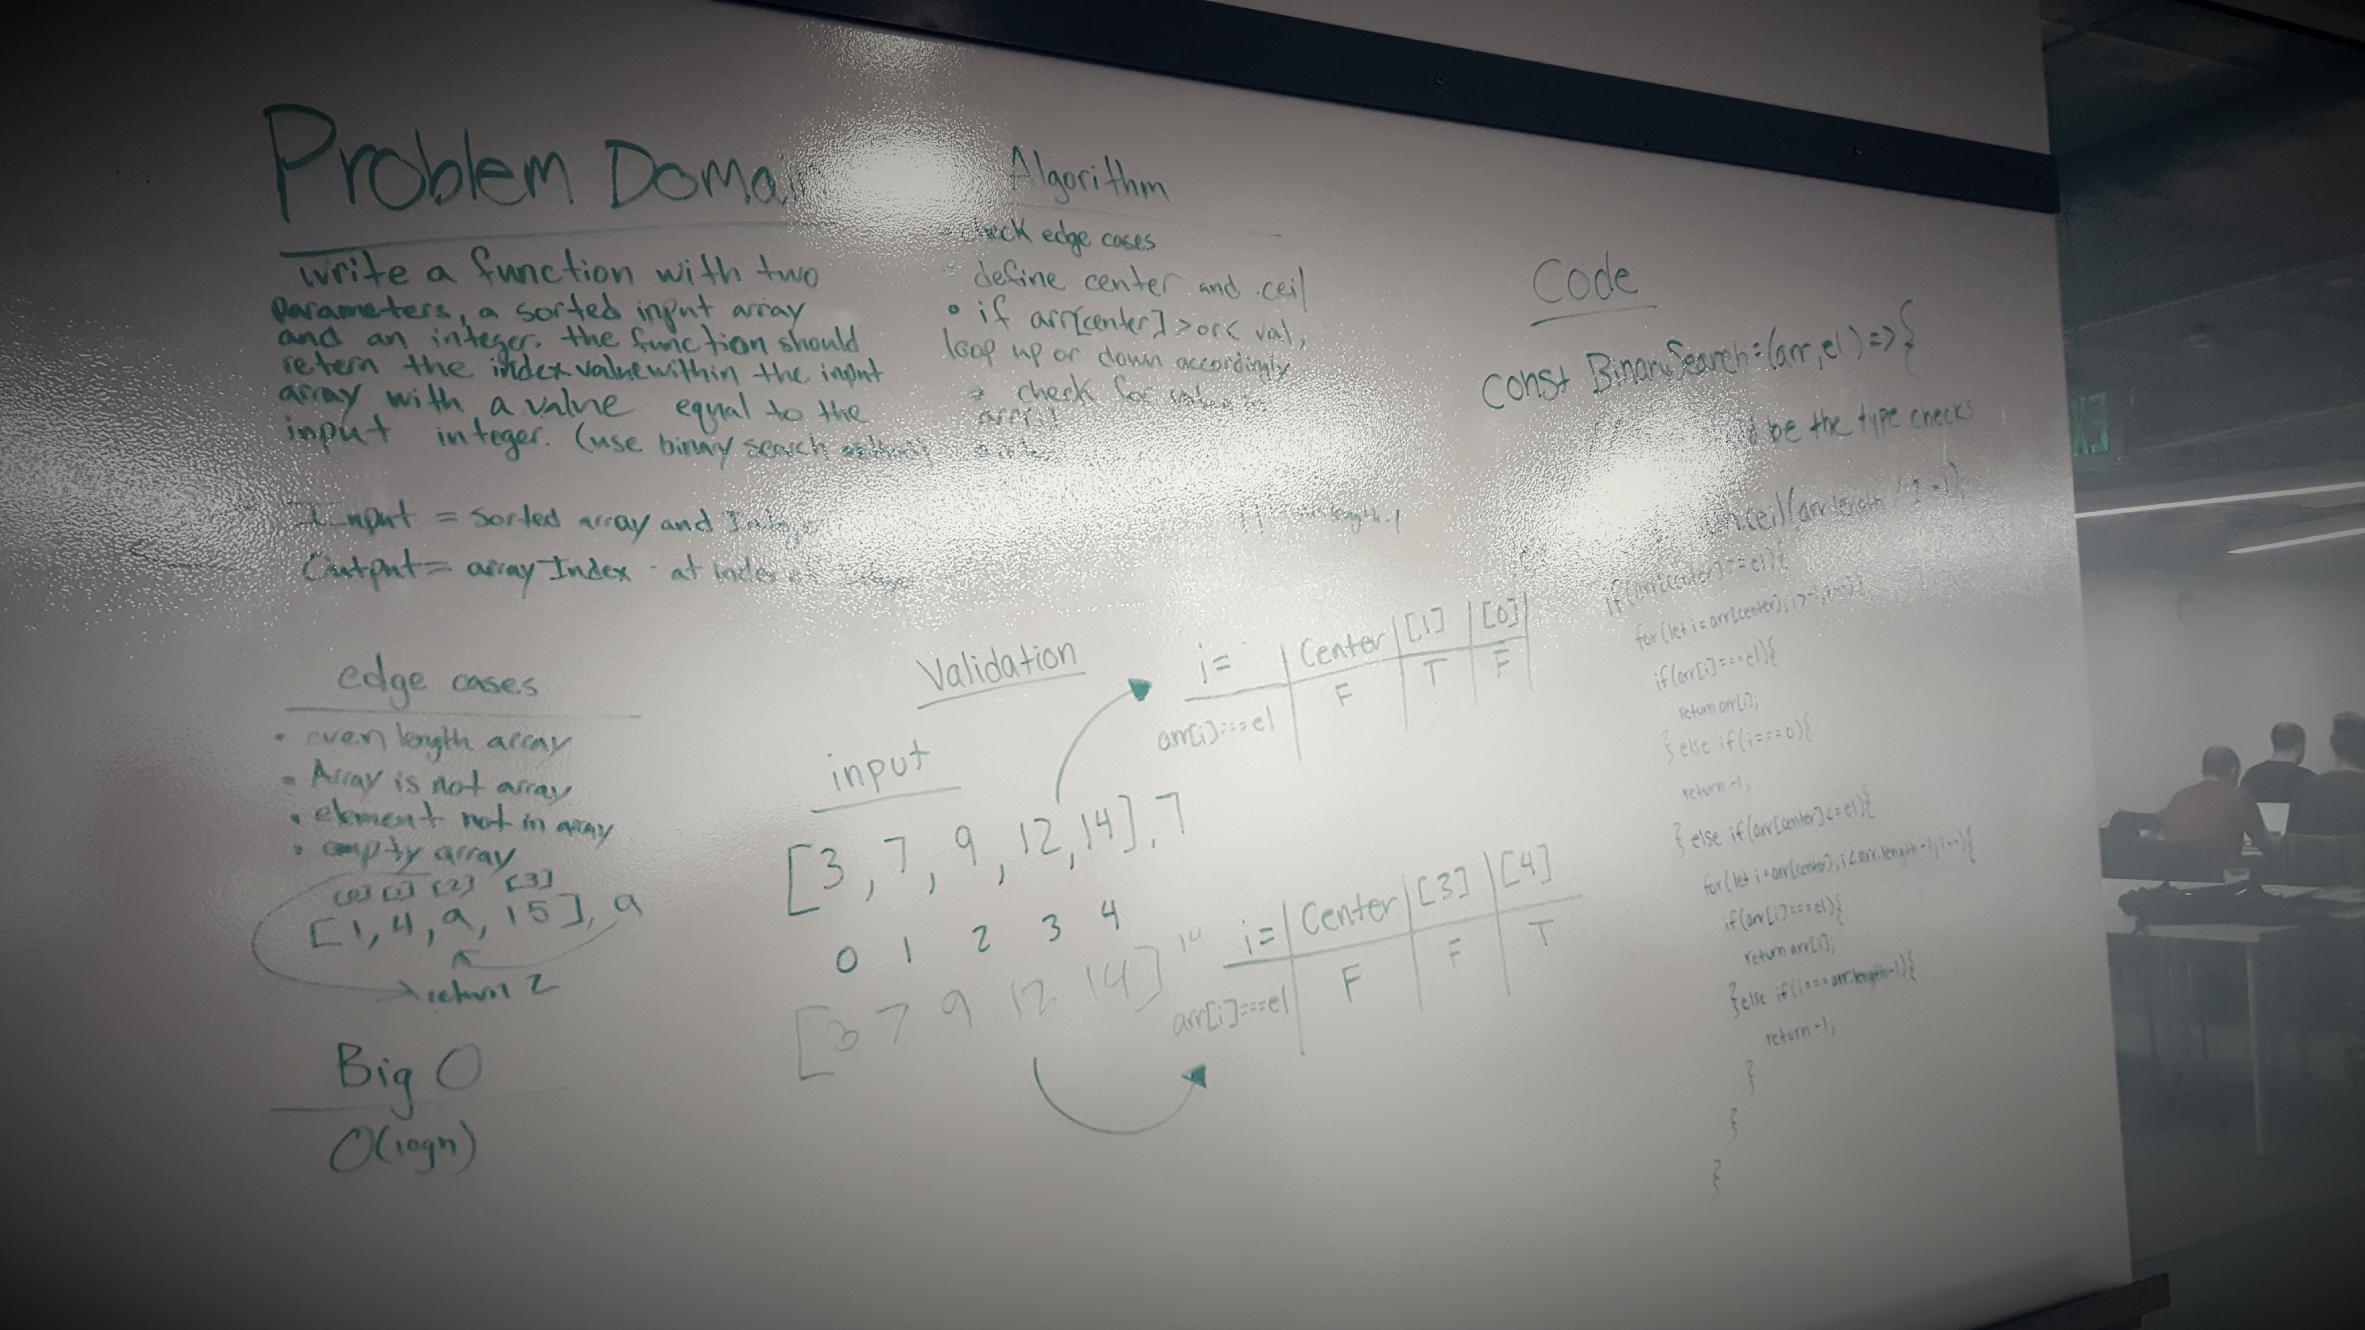 Problem Domain
Write a function with two
parameters, a sorted input array
and an integer. the function should
retern the index value within the input
array with a value equal to the
input integer. (use binary search
Input = sorted array and
Output = array Index - at index of
edge cases
• even length array
• Array is not array
• element not in array
• empty array
[0] [1] [2] [3]
[1, 4, 9, 15], 9
return 2
Big O
O(logn)
Algorithm
check edge cases
define center and ceil
• if arr[center] > or < val,
loop up or down accordingly
• check for
Validation
input
[3, 7, 9, 12, 14], 7
0 1 2 3 4
[3 7 9 12 14] 14
i= Center [1] [0]
arr[i]===el F T F
i= Center [3] [4]
arr[i]===el F F T
Code
const BinarySearch=(arr,el)=>{
be the type checks
ceil(arr.length
for(let i=arr[center];
if(arr[i]===el){
return arr[i];
} else if(i===0){
return -1;
} else if(arr[center]<=el){
for(let i=arr[center]; i<arr.length-1;
if(arr[i]===el){
return arr[i];
}else if(i===arr.length-1){
return -1;
}
}
}